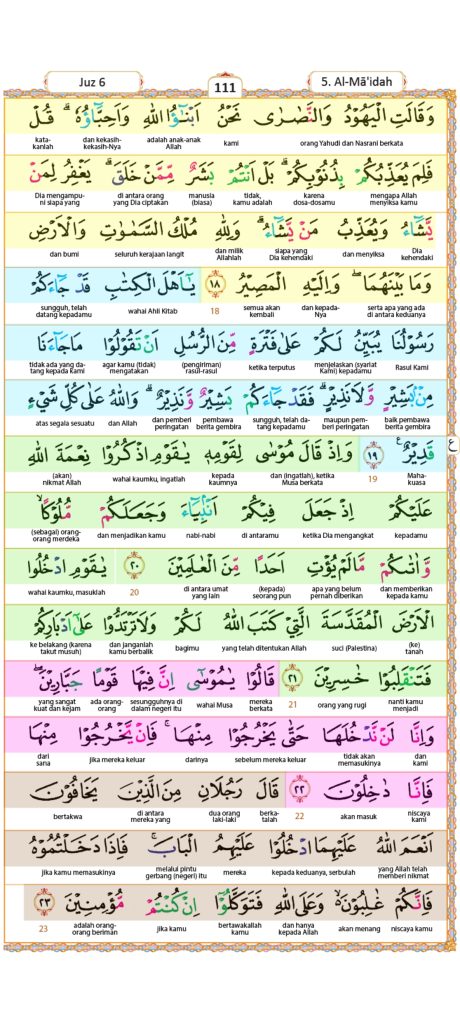 Juz 6
111
5. Al-Mā'idah
وَقَالَتِ الْيَهُوْدُ وَالنَّصٰرٰى نَحْنُ اَبْنٰۤؤُا اللّٰهِ وَاَحِبَّاۤؤُهٗ ۗ قُلْ
orang Yahudi dan Nasrani berkata kami adalah anak-anak Allah dan kekasih-kekasih-Nya kata-kanlah
فَلِمَ يُعَذِّبُكُمْ بِذُنُوْبِكُمْ ۗ بَلْ اَنْتُمْ بَشَرٌ مِّمَّنْ خَلَقَ ۗ يَغْفِرُ لِمَنْ
mengapa Allah menyiksa kamu karena dosa-dosamu tidak, kamu adalah manusia (biasa) di antara orang yang Dia ciptakan Dia mengampu-ni siapa yang
يَّشَاۤءُ وَيُعَذِّبُ مَنْ يَّشَاۤءُ ۗ وَلِلّٰهِ مُلْكُ السَّمٰوٰتِ وَالْاَرْضِ
Dia kehendaki dan menyiksa siapa yang Dia kehendaki dan milik Allahlah seluruh kerajaan langit dan bumi
وَمَا بَيْنَهُمَا ۖ وَاِلَيْهِ الْمَصِيْرُ ١٨ يٰٓاَهْلَ الْكِتٰبِ قَدْ جَاۤءَكُمْ
serta apa yang ada di antara keduanya dan kepada-Nya semua akan kembali 18 wahai Ahli Kitab sungguh, telah datang kepadamu
رَسُوْلُنَا يُبَيِّنُ لَكُمْ عَلٰى فَتْرَةٍ مِّنَ الرُّسُلِ اَنْ تَقُوْلُوْا مَا جَاۤءَنَا
Rasul Kami menjelaskan (syariat Kami) kepadamu ketika terputus (pengiriman) rasul-rasul agar kamu (tidak) mengatakan tidak ada yang da-tang kepada kami
مِنْۢ بَشِيْرٍ وَّلَا نَذِيْرٍ ۗ فَقَدْ جَاۤءَكُمْ بَشِيْرٌ وَّنَذِيْرٌ ۗ وَاللّٰهُ عَلٰى كُلِّ شَيْءٍ
baik pembawa berita gembira maupun pem-beri peringatan sungguh, telah da-tang kepadamu pembawa berita gembira dan pemberi peringatan dan Allah atas segala sesuatu
قَدِيْرٌ ١٩ ع وَاِذْ قَالَ مُوْسٰى لِقَوْمِهٖ يٰقَوْمِ اذْكُرُوْا نِعْمَةَ اللّٰهِ
Maha-kuasa 19 dan (ingatlah), ketika Musa berkata kepada kaumnya wahai kaumku, ingatlah (akan) nikmat Allah
عَلَيْكُمْ اِذْ جَعَلَ فِيْكُمْ اَنْۢبِيَاۤءَ وَجَعَلَكُمْ مُّلُوْكًا ۙ
kepadamu ketika Dia mengangkat di antaramu nabi-nabi dan menjadikan kamu (sebagai) orang-orang merdeka
وَّاٰتٰىكُمْ مَّا لَمْ يُؤْتِ اَحَدًا مِّنَ الْعٰلَمِيْنَ ٢٠ يٰقَوْمِ ادْخُلُوا
dan memberikan kepada kamu apa yang belum pernah diberikan (kepada) seorang pun di antara umat yang lain 20 wahai kaumku, masuklah
الْاَرْضَ الْمُقَدَّسَةَ الَّتِيْ كَتَبَ اللّٰهُ لَكُمْ وَلَا تَرْتَدُّوْا عَلٰٓى اَدْبَارِكُمْ
(ke) tanah suci (Palestina) yang telah ditentukan Allah bagimu dan janganlah kamu berbalik ke belakang (karena takut musuh)
فَتَنْقَلِبُوْا خٰسِرِيْنَ ٢١ قَالُوْا يٰمُوْسٰٓى اِنَّ فِيْهَا قَوْمًا جَبَّارِيْنَ ۖ
nanti kamu menjadi orang yang rugi 21 mereka berkata wahai Musa sesungguhnya di dalam negeri itu ada orang-orang yang sangat kuat dan kejam
وَاِنَّا لَنْ نَّدْخُلَهَا حَتّٰى يَخْرُجُوْا مِنْهَا ۚ فَاِنْ يَّخْرُجُوْا مِنْهَا
dan kami tidak akan memasukinya sebelum mereka keluar darinya jika mereka keluar dari sana
فَاِنَّا دٰخِلُوْنَ ٢٢ قَالَ رَجُلَانِ مِنَ الَّذِيْنَ يَخَافُوْنَ
niscaya kami akan masuk 22 berka-talah dua orang laki-laki di antara mereka yang bertakwa
اَنْعَمَ اللّٰهُ عَلَيْهِمَا ادْخُلُوْا عَلَيْهِمُ الْبَابَ ۚ فَاِذَا دَخَلْتُمُوْهُ
yang Allah telah memberi nikmat kepada keduanya, serbulah mereka melalui pintu gerbang (negeri) itu jika kamu memasukinya
فَاِنَّكُمْ غٰلِبُوْنَ ۙ وَعَلَى اللّٰهِ فَتَوَكَّلُوْٓا اِنْ كُنْتُمْ مُّؤْمِنِيْنَ ٢٣
niscaya kamu akan menang dan hanya kepada Allah bertawakallah kamu jika kamu adalah orang-orang beriman 23